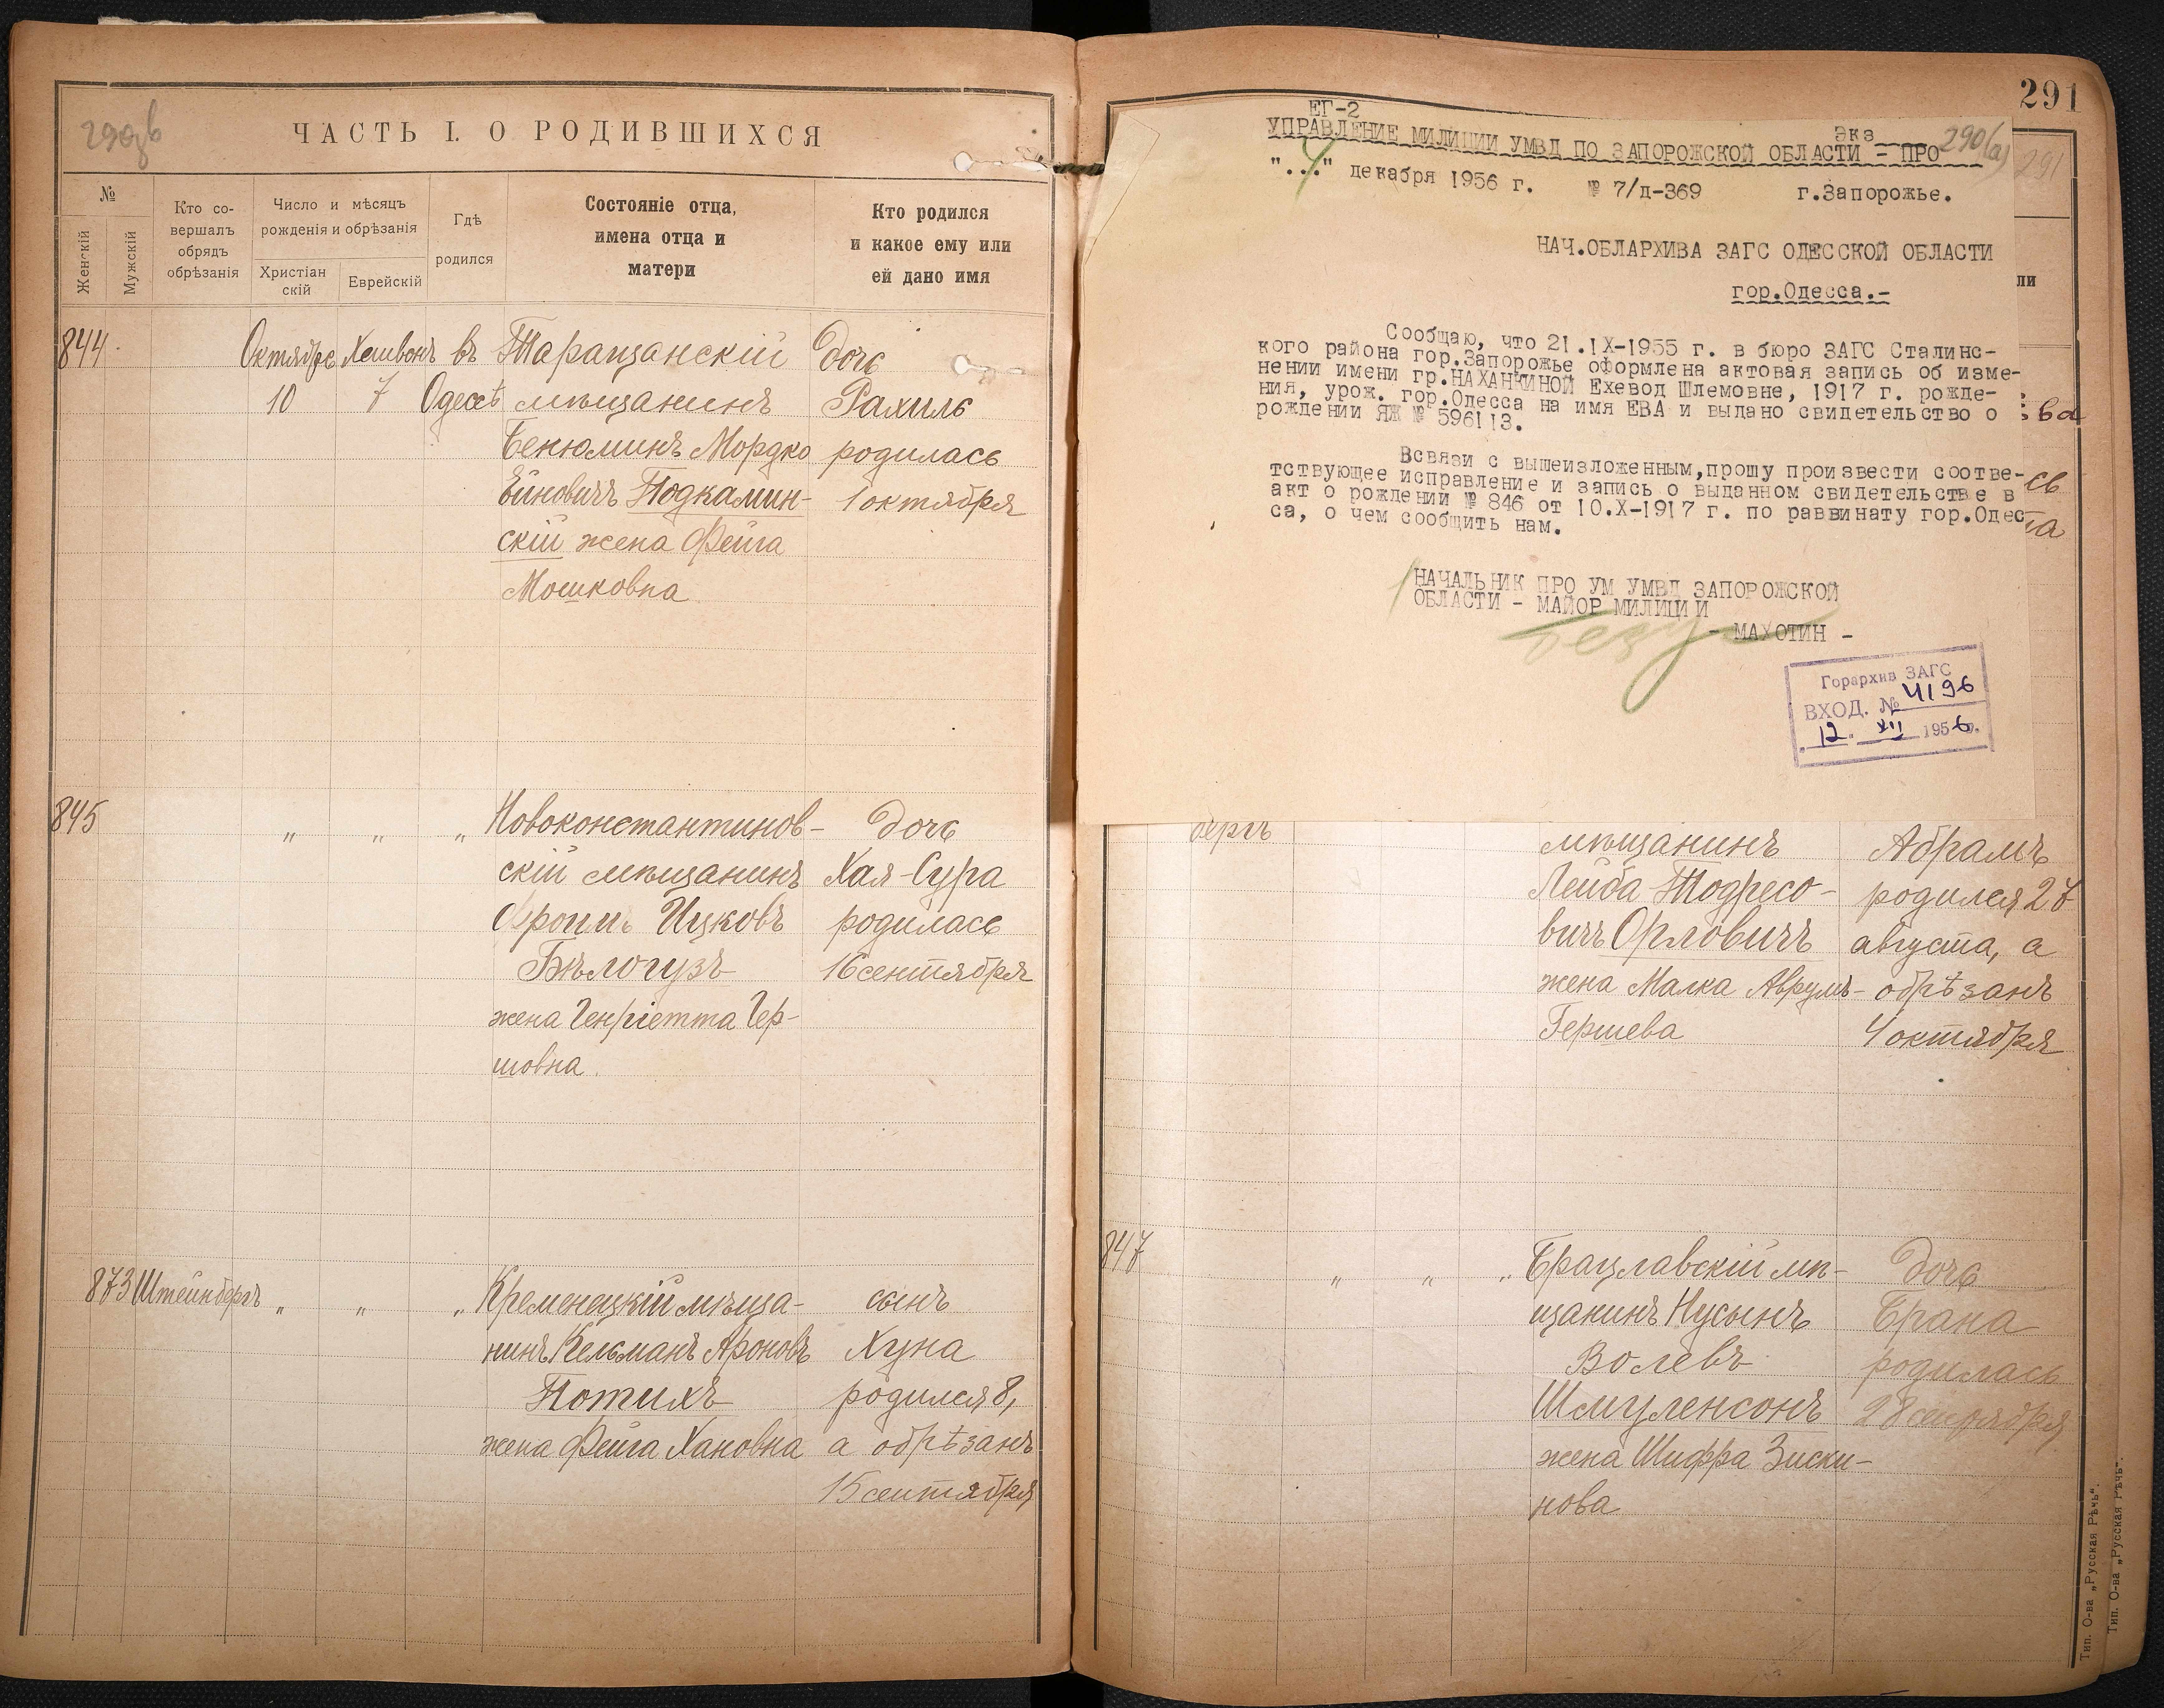 290 об
ЧАСТЬ I. О РОДИВШИХСЯ
№
Женскій
Мужскій
Кто со-
вершалъ
обрядъ
обрѣзанія
Число и мѣсяцъ
рожденія и обрѣзанія
Христіан
скій
Еврейскій
Гдѣ
родился
Состояніе отца,
имена отца и
матери
Кто родился
и какое ему или
ей дано имя
844
Октября Хешвонъ въ Таращанскій дочь
10 7 Одессѣ мѣщанинъ Рахиль
Бенюминъ Мордко родилась
Ейновичъ Подкамин- 1 октября
скій жена Фейга
Мошковна
845 " " " Новоконстантинов- дочь
скій мѣщанинъ Хая-Сура
Фроимъ Ицковъ родилась
Бѣлогузъ 16 сентября
жена Генріетта Гер-
шовна.
873 Штейнбергъ " " " Кременецкій мѣща- сынъ
нинъ Кельманъ Ароновъ Хуна
Потихъ родился 8,
жена Фейга Хановна а обрѣзанъ
15 сентября
291
291
ЕГ-2
Экз
290(а)
УПРАВЛЕНИЕ МИЛИЦИИ УМВД ПО ЗАПОРОЖСКОЙ ОБЛАСТИ - ПРО
"..4.." декабря 1956 г. № 7/д-369 г.Запорожье.
НАЧ.ОБЛАРХИВА ЗАГС ОДЕССКОЙ ОБЛАСТИ
гор.Одесса.-
Сообщаю, что 21.IX-1955 г. в бюро ЗАГС Сталинс-
кого района гор.Запорожье оформлена актовая запись об изме-
нении имени гр.НАХАНКИНОЙ Ехевод Шлемовне, 1917 г. рожде-
ния, урож. гор.Одесса на имя ЕВА и выдано свидетельство о
рождении ЯЖ № 596113.
Всвязи с вышеизложенным,прошу произвести соотве-
тствующее исправление и запись о выданном свидетельстве в
акт о рождении № 846 от 10.X-1917 г. по раввинату гор.Одес
са, о чем сообщить нам.
НАЧАЛЬНИК ПРО УМ УМВД ЗАПОРОЖСКОЙ
ОБЛАСТИ - МАЙОР МИЛИЦИИ
- МАХОТИН -
Горархив ЗАГС
ВХОД. № 4196
12. XII 1956 г.
ли
ва
сь
та
бергъ мѣщанинъ Абрамъ
Лейба Тодресо- родился 27
вичъ Орловичъ августа, а
жена Малка Аврумъ- обрѣзанъ
Гершева 4 октября
847 " " " Брацлавскій мѣ- дочь
щанинъ Нусынъ Брана
Волевъ родилась
Шмуленсонъ 28 сентября
жена Шифра Зиски-
нова
Тип. О-ва „Русская Рѣчь“.
Тип. О-ва „Русская Рѣчь“.